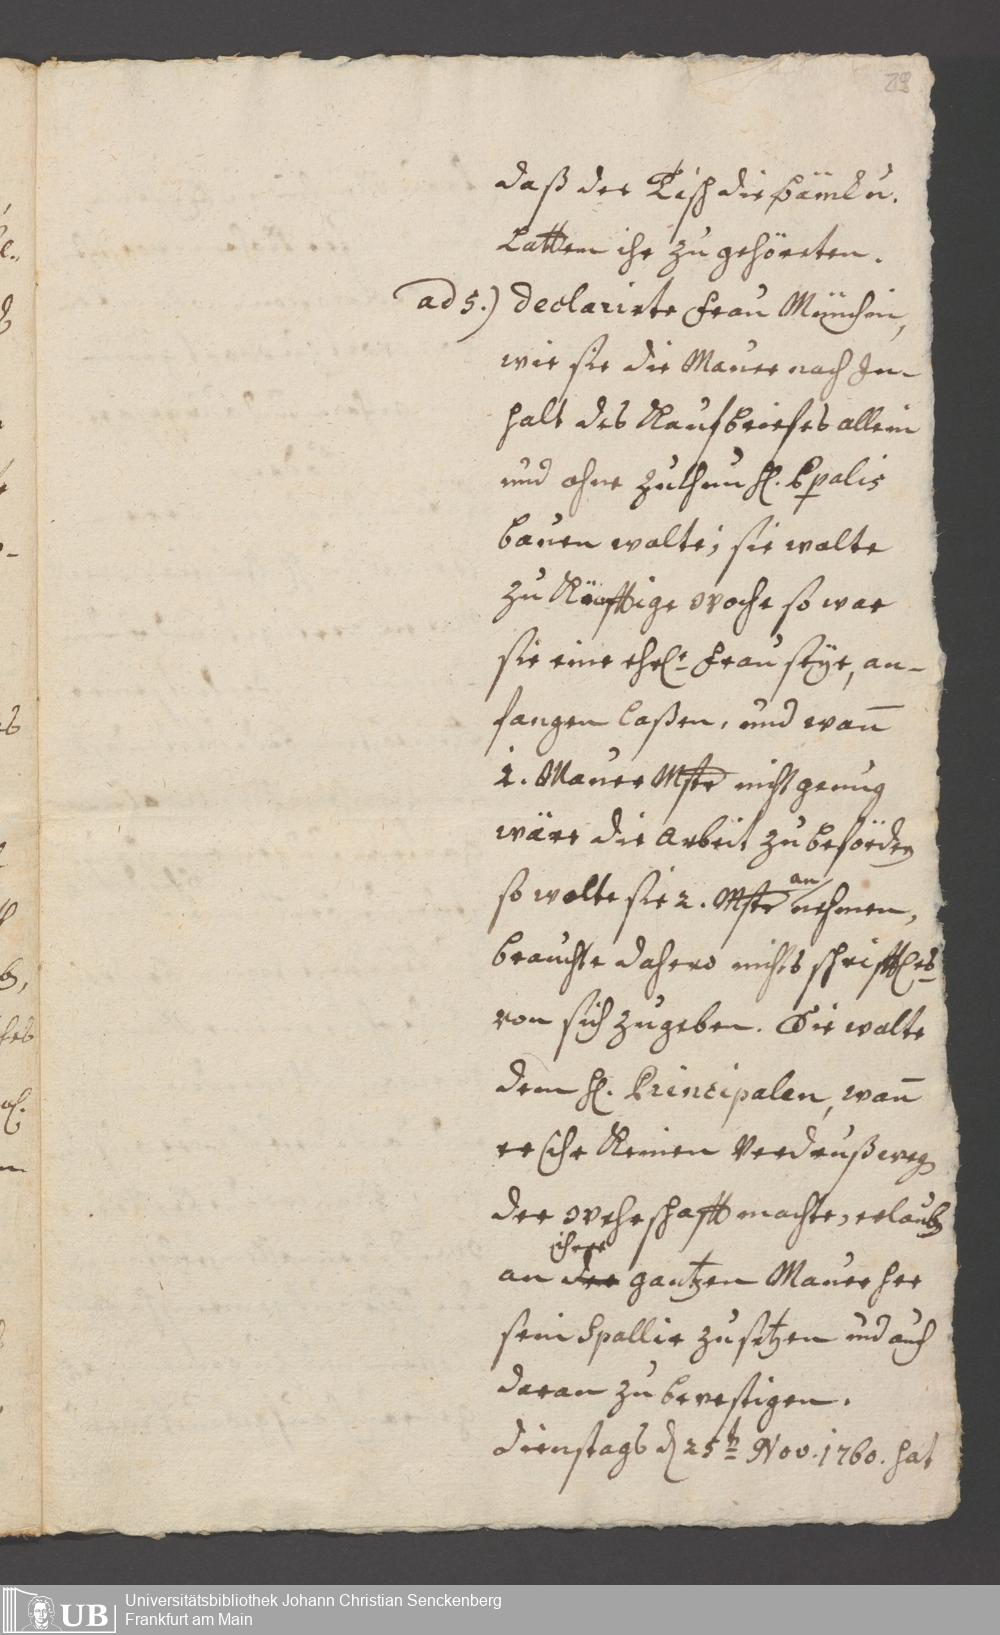 29
daß der Tisch die Bänck u.
Latten ihr zu gehöreten.
ad 5.) declarirte Frau Münchin,
wie sie die Mauer nach In-
halt des Kaufbriefes allein
und ohne zuthun H. Ppalis
bauen wolte; sie wolte
zu Künfftige Woche so war
sie eine ehrl. Frau seye, an-
fangen laßen, und wann
1. Mauer Mstr nicht genug
wäre die Arbeit zu befördern
so wolte sie 2. Mstr annehmen,
brauchte dahero nichts schrifftles
von sich zugeben. Sie wolte
dem H. Principalen, wann
er ihr Keinen Verdruß weg
der Wehrschafft machte, erlauben
an ihrer gantzen Mauer her
sein Spallir zu setzen und auch
daran zu bevestigen.
Dienstags d 25t Nov. 1760. hat
UB
Universitätsbibliothek Johann Christian Senckenberg
Frankfurt am Main